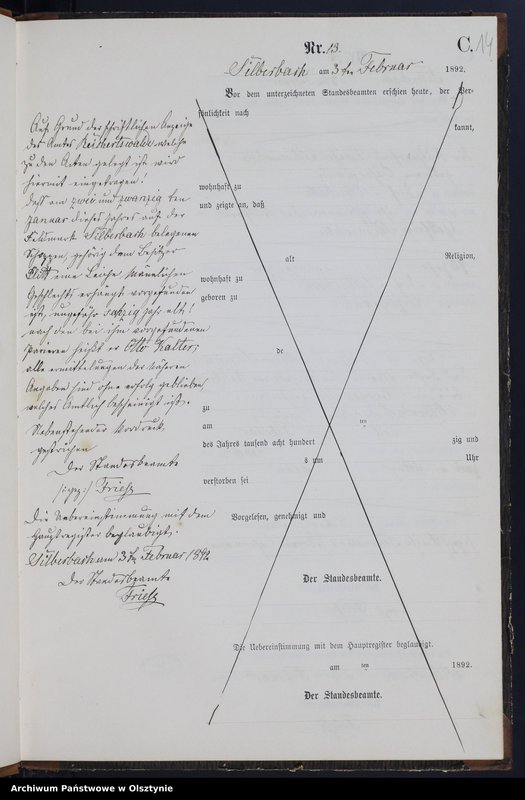 Nr. 13.
C. 14
Silberbach am 3ten Februar 1892.
Vor dem unterzeichneten Standesbeamten erschien heute, der Persönlichkeit nach
kannt,
Auf Grund der schriftlichen Anzeige
des Amtes Reichertswalde welche
zu den Akten gelegt ist wird
hiermit eingetragen!
daß am zwei und zwanzig ten
Januar dieses Jahres auf der
Feldmark Silberbach belegenen
Schoppen, gehörig dem Besitzer
eine Leiche männlichen
Geschlechts erhängt vorgefunden
ist, ungefähr sechzig Jahr alt!
nach den bei ihm vorgefundenen
Papieren heißt er Otto Kalter,
alle Ermittelungen der näheren
Angaben sind ohne erfolg geblieben
welches Amtlich bescheinigt ist.
Nebenstehender Vordruck
gestrichen
Der Standesbeamte
(:gez:) Friese
Die Uebereinstimmung mit dem
Hauptregister beglaubigt.
Silberbach am 3ten Februar 1892
Der Standesbeamte
Friese
wohnhaft zu
und zeigte an, daß
alt Religion,
wohnhaft zu
geboren zu
de
zu
am ten
des Jahres tausend acht hundert zig und
s um Uhr
verstorben sei
Vorgelesen, genehmigt und
Der Standesbeamte.
Die Uebereinstimmung mit dem Hauptregister beglaubigt.
am ten 1892.
Der Standesbeamte.
Archiwum Państwowe w Olsztynie